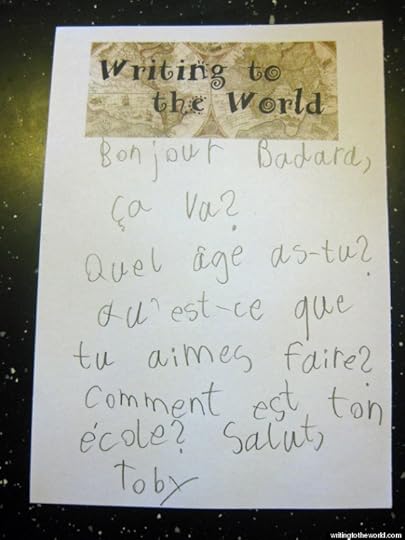 Writing to
the World
Bonjour Badard,
ça va?
Quel âge as-tu?
Qu'est-ce que
tu aimes faire?
Comment est ton
école? Salut,
Toby
writingtotheworld.com